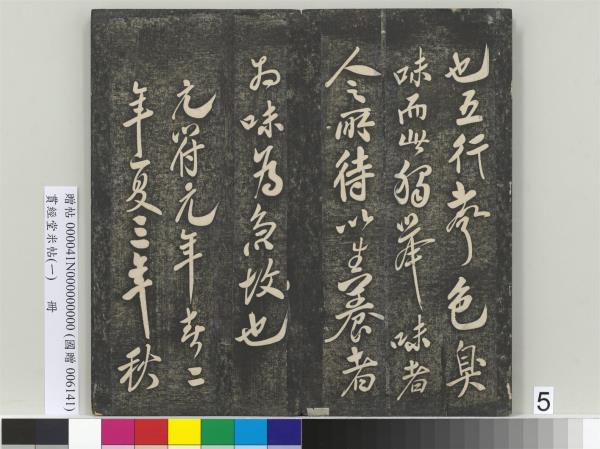 也五行聲色臭
味而此獨舉味者
人之所待以生養者
為味為急故也
元符元年春二
年夏三年秋
贈帖 000041N000000000 (國贈 006141)
賞經堂米帖(一) 冊
5